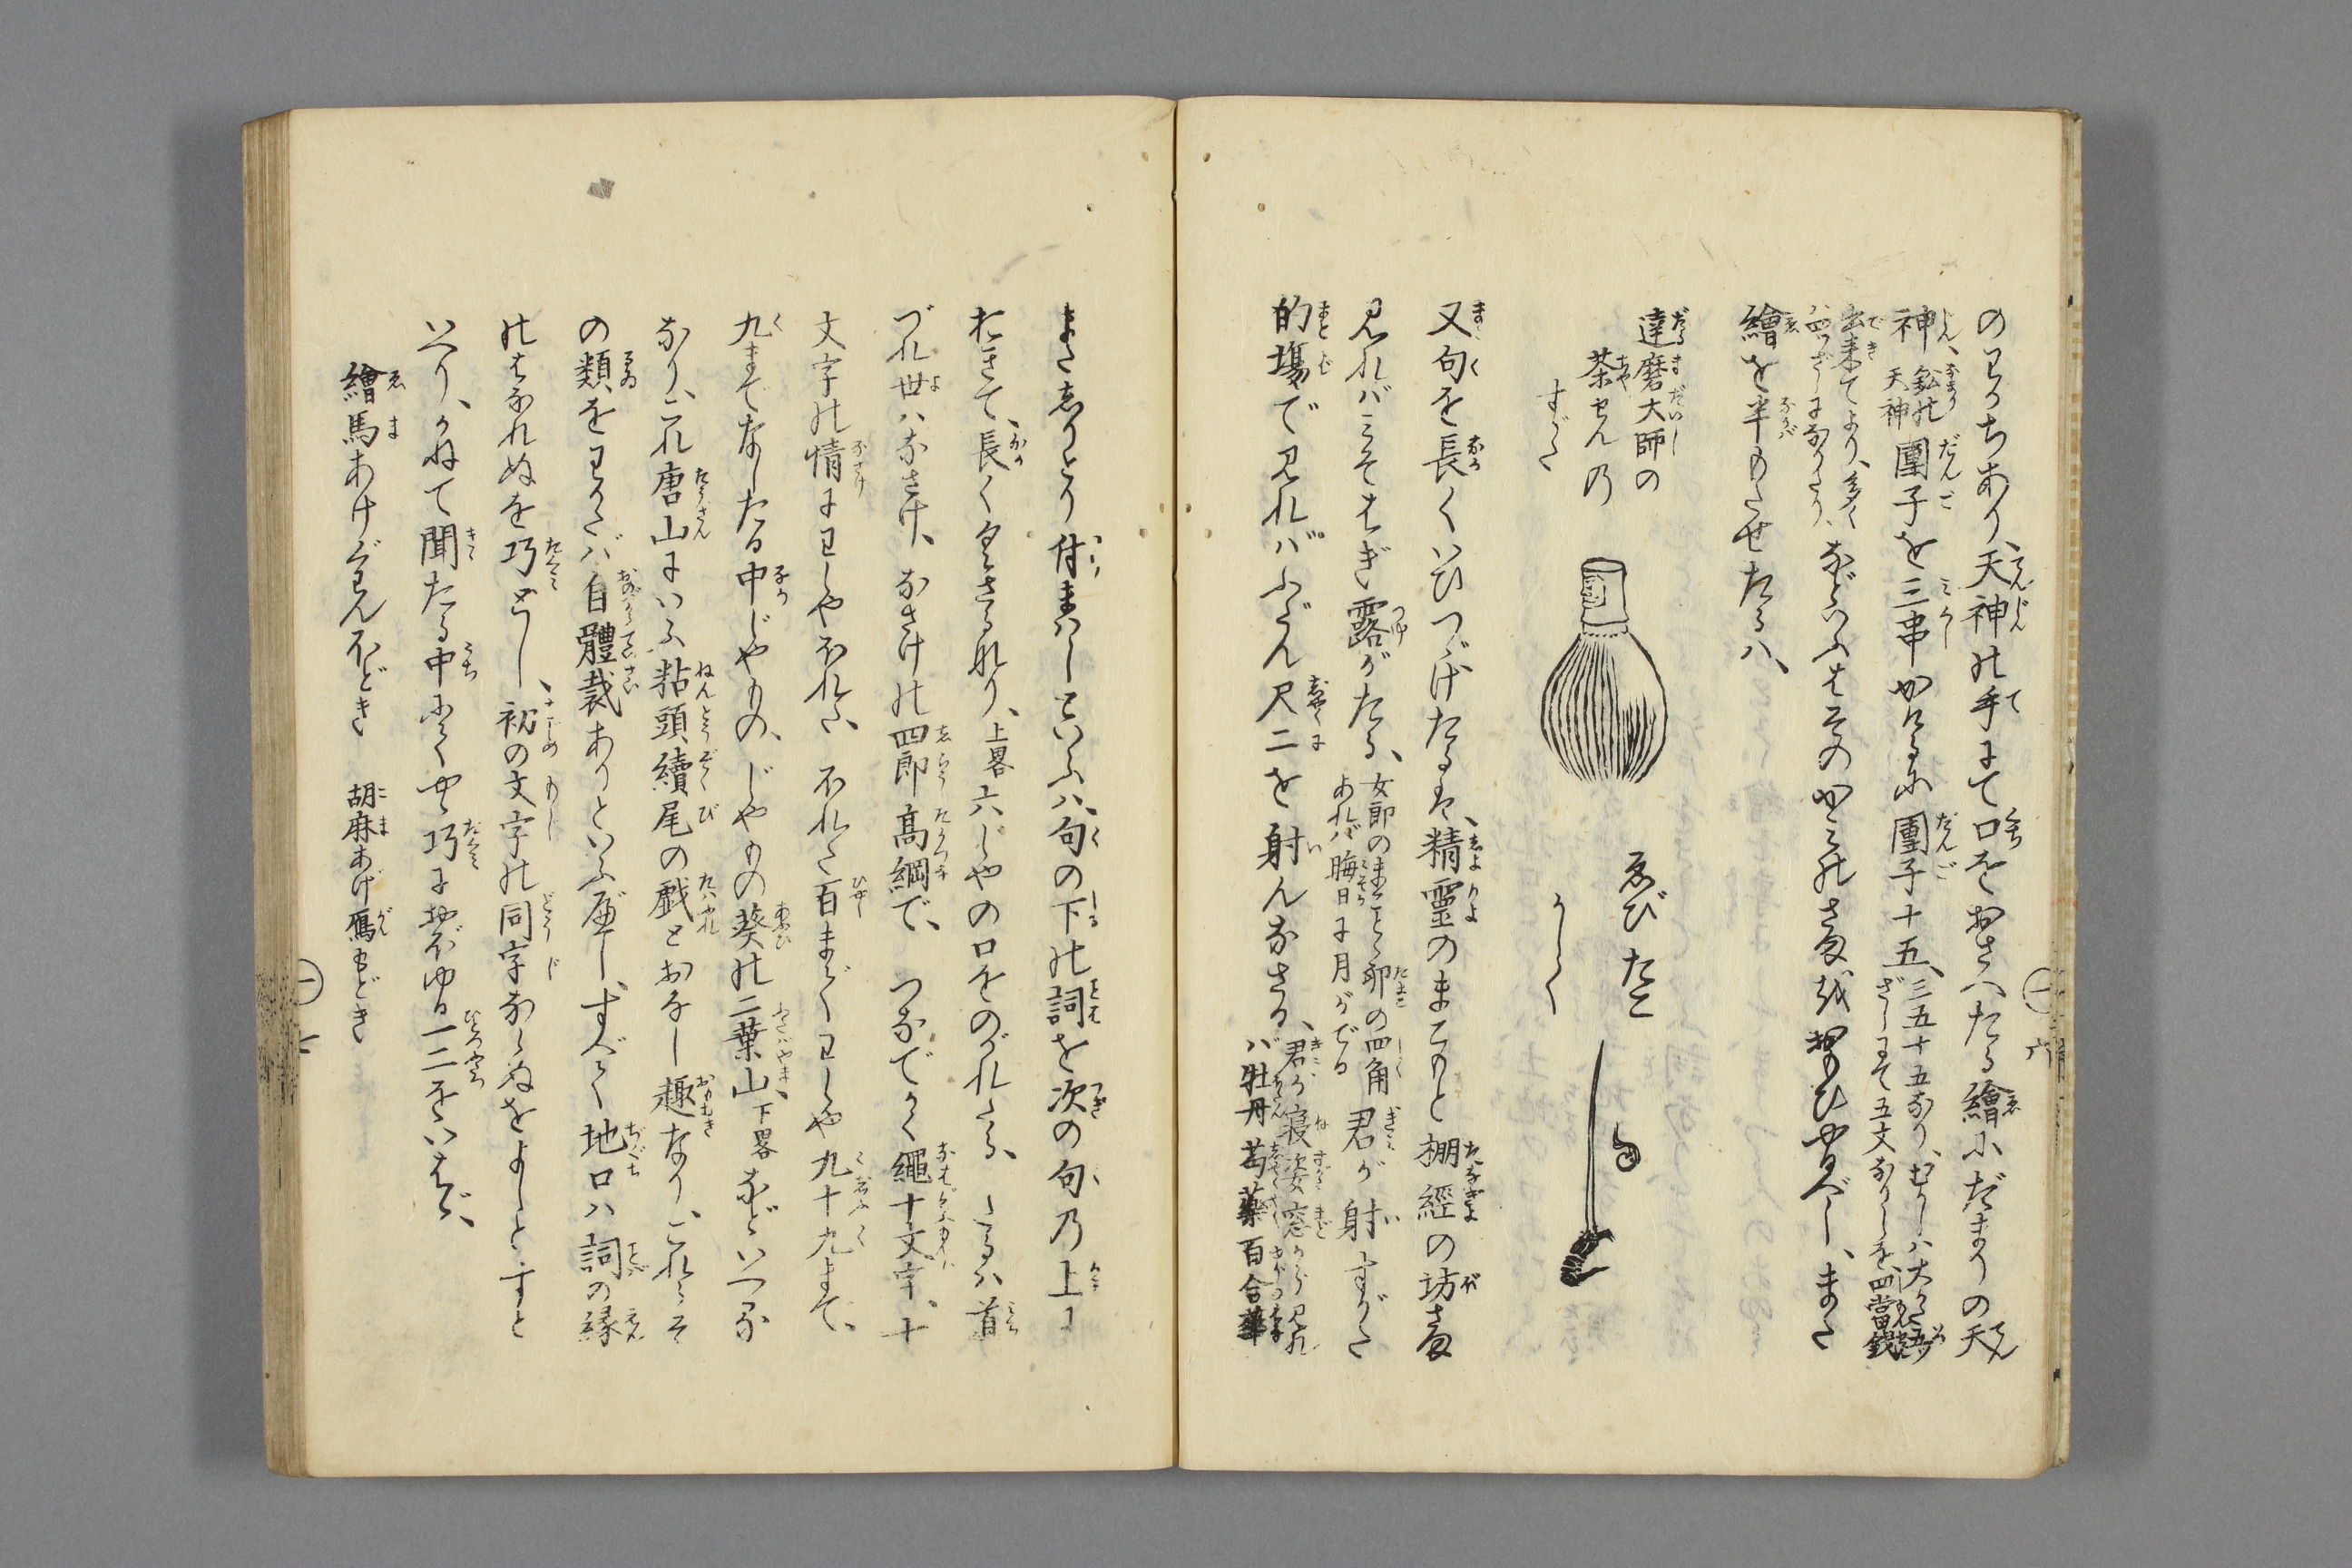 のわちあり、天神の手にて口をおさへたる繪にだまりの天
神、鉛の天神團子を三串かけるに團子十五、三五十五なり、むかしハ大かた五ツざしにて五文なりしを、四當錢
出来てより、多く四ツざしになりたり、などいふはそのかみのさまは おもひやるべし、また
繪を半もたせたるハ、
達磨大師の
茶せんの
すがた
ゑびたこ
又句を長くいひつゞけたるは、精靈のまことと棚經の坊さま
見れバこそはぎ露がたる、女郎のまことゝ卵の四角あれバ晦日に月がでる 君が射すがた
的塲で見れバふだん尺二を射んなさる、君が寝姿窓から見れバ牡丹芍薬百合華
またしりとり付まハしといふハ、句の下の詞を次の句乃上に
おきて、長く
上畧六じやの口をのがれたる、たるハ道
づれ世ハなさけ、なさけの四郎高綱で、つなでかく繩十文字、十
文字の情にわしやほれた、ほれた百までわしや九十九まで、
九までなしたる中じやもの、じやもの葵の二葉山、下畧などいへる
なり、これ唐山にいふ粘頭續尾の戯とおなし趣なり、これらそ
の類をわかたバ自體裁ありといふべし、すべて地口ハ詞の縁
のはなれぬを巧とし、初の文字の同字ならぬをよしとすと
いへり、かねて聞たる中にて巧におぼゆる一二をいはゞ、
繪馬あけぐわんほどき　胡麻あげ鴈もどき
六
七